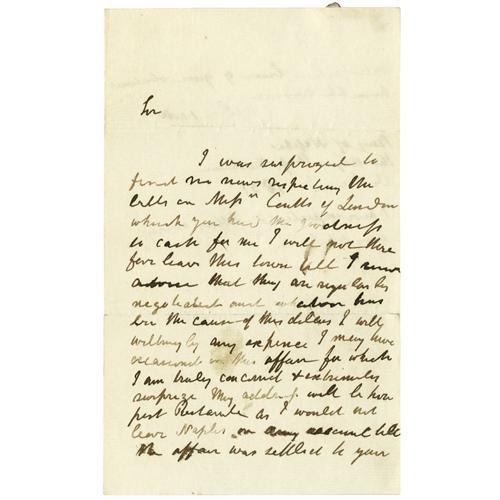 Sir
I was surprized to
find no news respecting the
bills on Messrs Coutts of London
which you had the goodness
to cash for me I will not there
fore leave this town till I
that they are regularly
negotiated and
been the cause of this delay I will
willingly any expence I may have
occasioned in this affair for which
I am truly concerned & extremely
surprize My address will be here
post Restante as I would not
leave Naples on any account till
the affair was settled to your